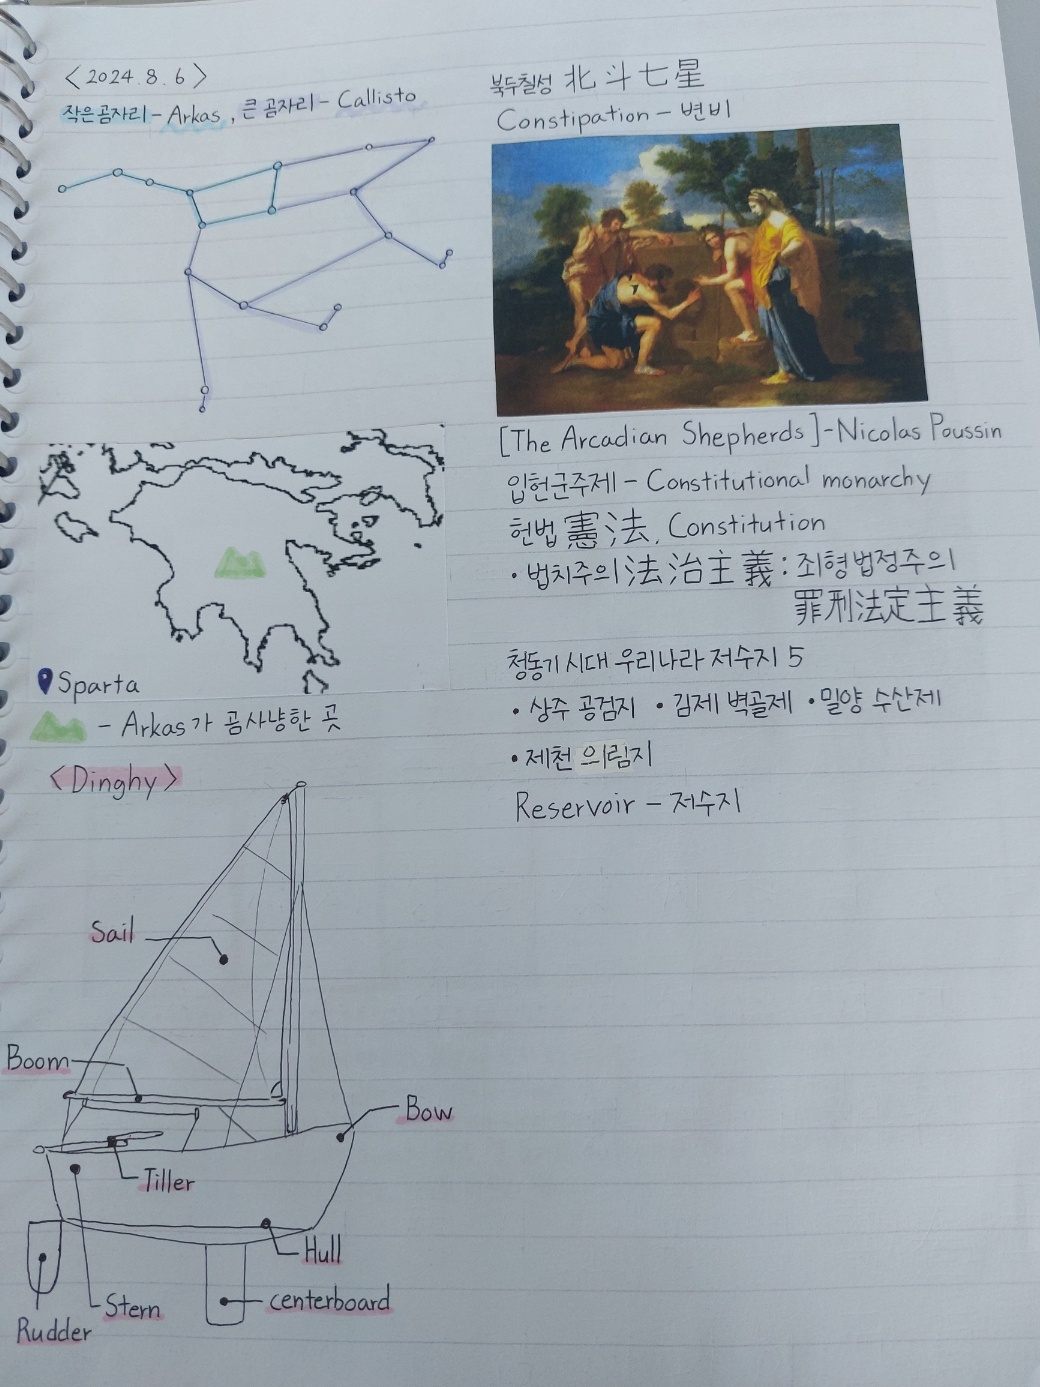 <2024.8.6>
작은곰자리-Arkas, 큰곰자리-Callisto
Sparta
-Arkas가 곰사냥한 곳
<Dinghy>
Sail
Boom
Bow
Tiller
Hull
Stern
centerboard
Rudder
북두칠성 北斗七星
Constipation - 변비
[The Arcadian Shepherds]-Nicolas Poussin
입헌군주제 - Constitutional monarchy
헌법 憲法, Constitution
·법치주의 法治主義: 죄형법정주의
罪刑法定主義
청동기시대 우리나라 저수지 5
·상주 공검지 ·김제 벽골제 ·밀양 수산제
·제천 의림지
Reservoir - 저수지